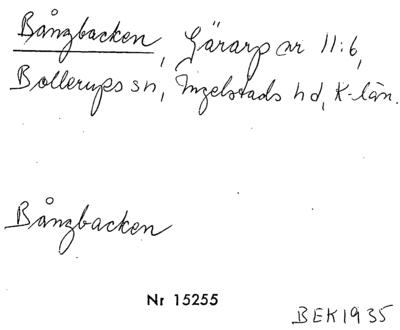 Bångbacken, Gärarp nr 11:6,
Bollerups sn, Ingelstads hd, K-län.
Bångbacken
Nr 15255
BEK1935